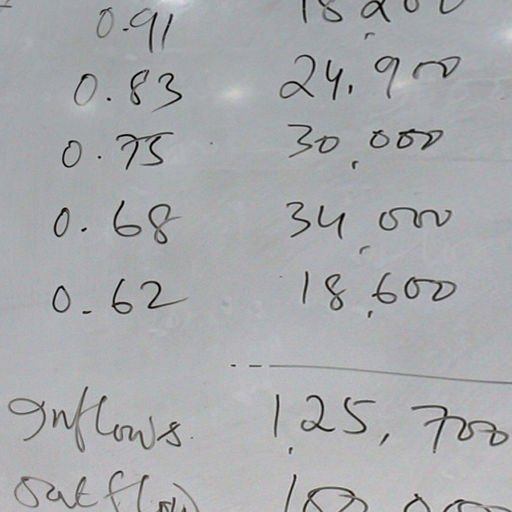 0.91 18,200
0.83 24,900
0.75 30,000
0.68 34,000
0.62 18,600
Inflows 1,25,700
outflow 100,000